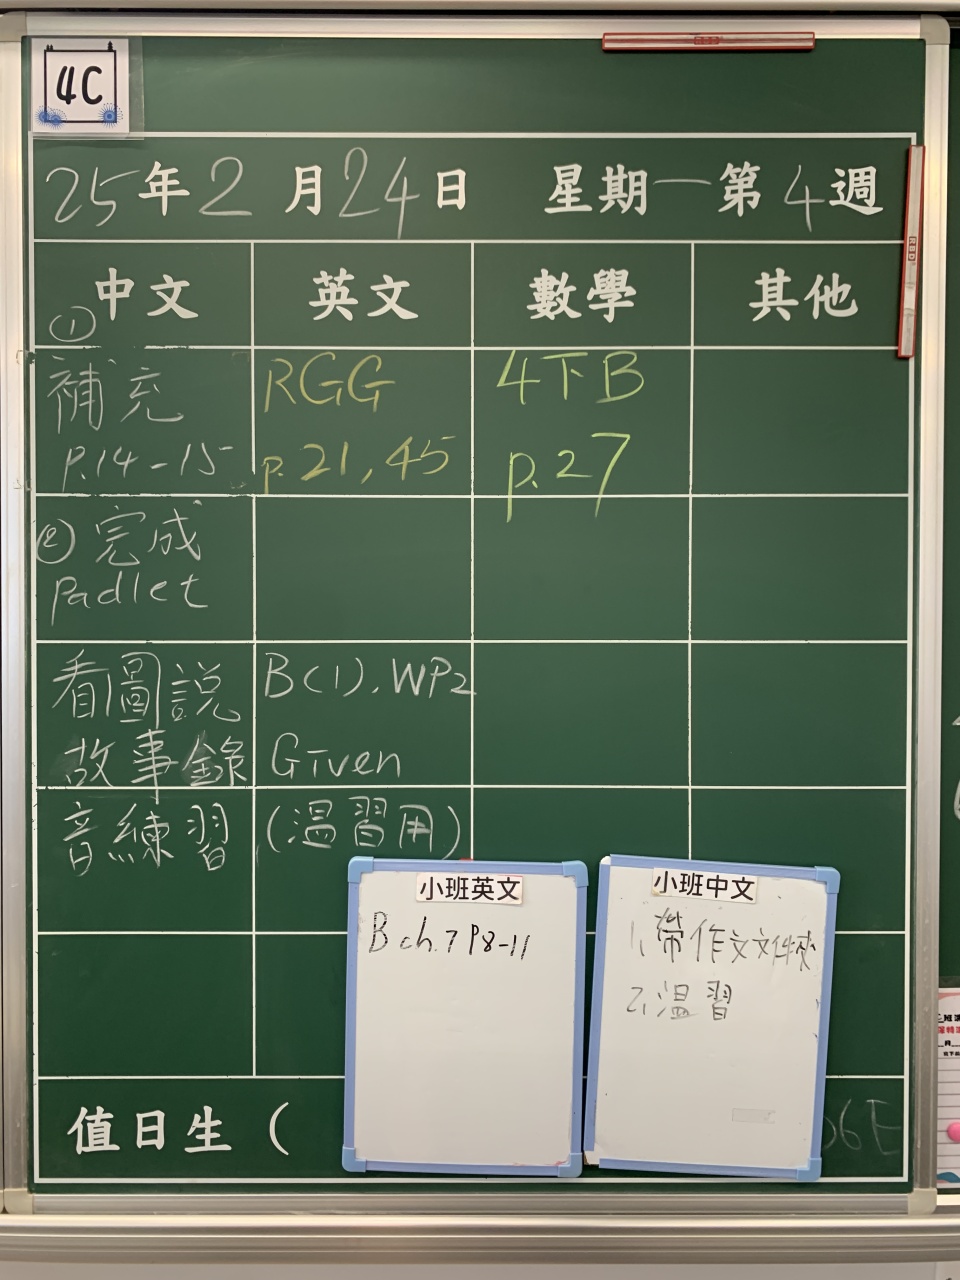 4C
25年2月24日 星期一第4週
中文 英文 數學 其他
①
補充
P.14-15
② 完成
Padlet
看圖說
故事錄
音練習
RGG
p.21,45
B(1), WP2
Given
(温習用)
4下B
p.27
小班英文
B ch.7 P8-11
小班中文
1. 帶作文文件夾
2. 温習
值日生 (
06E